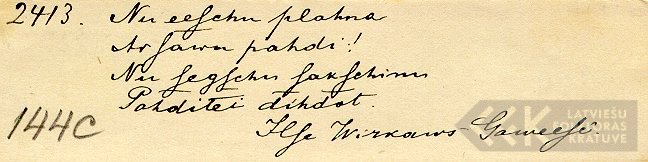 2413. Nu eeschu plahna
Ar sawu pahdi!
Nu segschu sakschinu
Pahditei dihdot.
144C Ilse Wirkaws - Gaweesē
LATVIEŠU
FOLKLORAS
KRĀTUVE